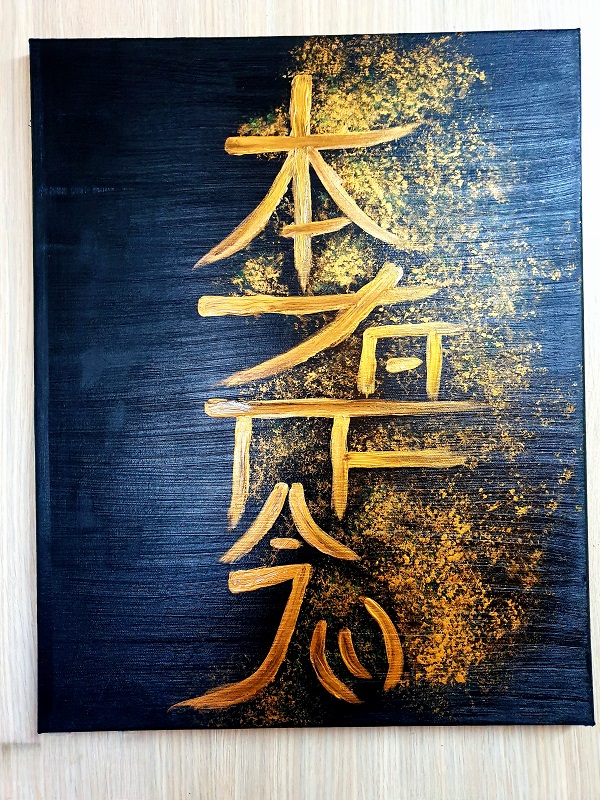 本者是正念